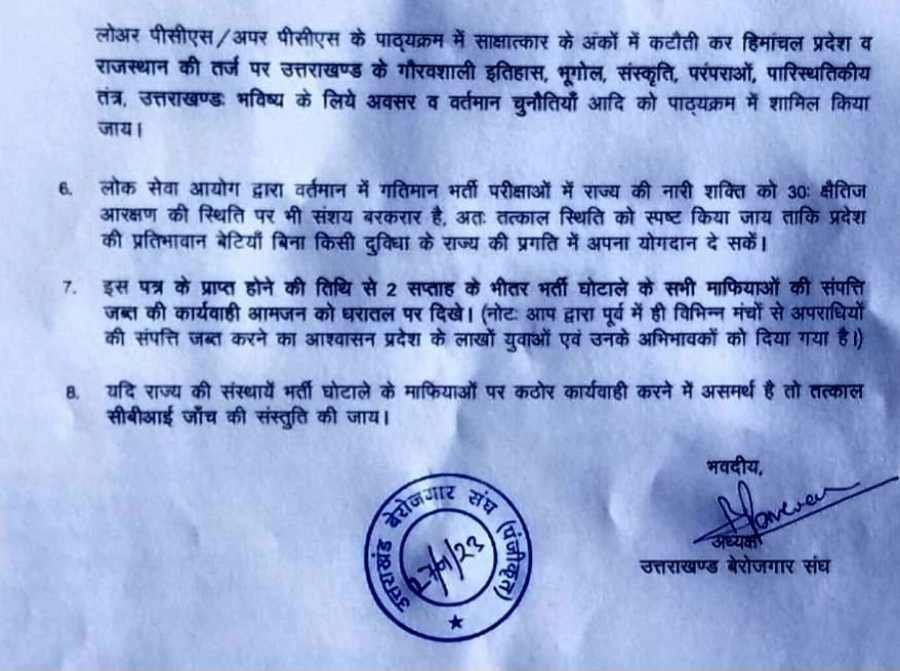 लोअर पीसीएस/अपर पीसीएस के पाठ्यक्रम में साक्षात्कार के अंकों में कटौती कर हिमांचल प्रदेश व
राजस्थान की तर्ज पर उत्तराखण्ड के गौरवशाली इतिहास, भूगोल, संस्कृति, परंपराओं, पारिस्थतिकीय
तंत्र, उत्तराखण्डः भविष्य के लिये अवसर व वर्तमान चुनौतियाँ आदि को पाठ्यक्रम में शामिल किया
जाय।
6. लोक सेवा आयोग द्वारा वर्तमान में गतिमान भर्ती परीक्षाओं में राज्य की नारी शक्ति को 30ः क्षैतिज
आरक्षण की स्थिति पर भी संशय बरकरार है, अतः तत्काल स्थिति को स्पष्ट किया जाय ताकि प्रदेश
की प्रतिभावान बेटियाँ बिना किसी दुविधा के राज्य की प्रगति में अपना योगदान दे सकें।
7. इस पत्र के प्राप्त होने की तिथि से 2 सप्ताह के भीतर भर्ती घोटाले के सभी माफियाओं की संपत्ति
जब्त की कार्यवाही आमजन को धरातल पर दिखे। (नोटः आप द्वारा पूर्व में ही विभिन्न मंचों से अपराधियों
की संपत्ति जब्त करने का आश्वासन प्रदेश के लाखों युवाओं एवं उनके अभिभावकों को दिया गया है।)
8. यदि राज्य की संस्थायें भर्ती घोटाले के माफियाओं पर कठोर कार्यवाही करने में असमर्थ है तो तत्काल
सीबीआई जाँच की संस्तुति की जाय।
भवदीय,
अध्यक्ष
उत्तराखण्ड बेरोजगार संघ
उत्तराखंड बेरोजगार संघ (पंजीकृत)
27/1/23